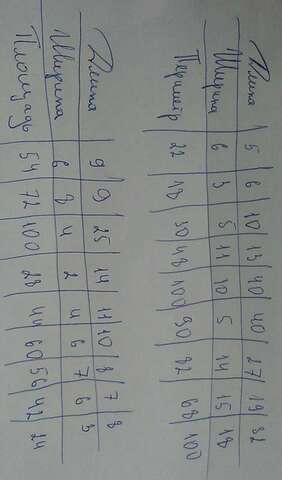 Длина 5 6 10 13 40 40 27 19 32
Ширина 6 3 5 11 10 5 14 15 18
Периметр 22 18 30 48 100 90 82 68 100
Длина 9 9 25 14 11 10 8 7 8
Ширина 6 8 4 2 4 6 7 6 3
Площадь 54 72 100 28 44 60 56 42 24